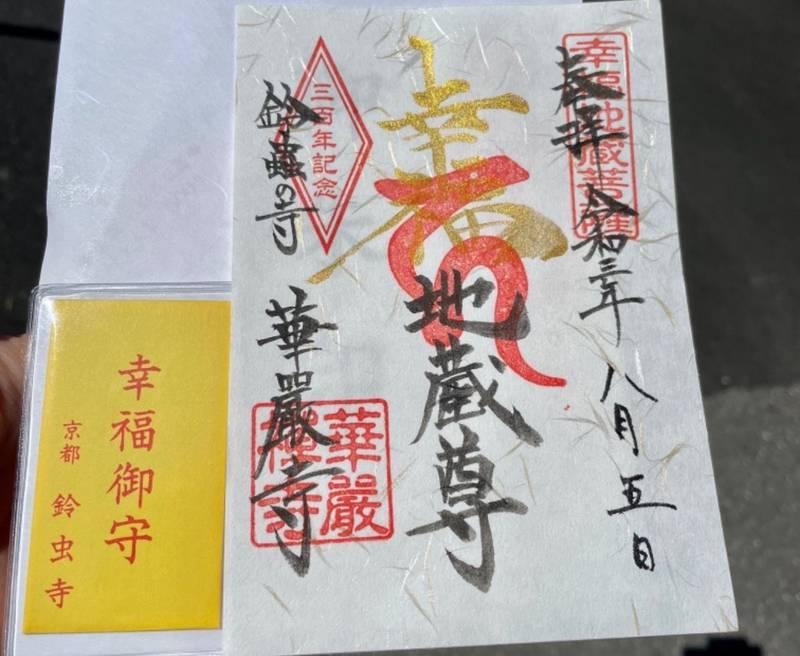 奉拝
令和三年
八月五日
幸福地蔵菩薩
幸福
地蔵尊
三百年記念
鈴蟲の寺
華嚴寺
華嚴禅寺
幸福御守
京都 鈴虫寺